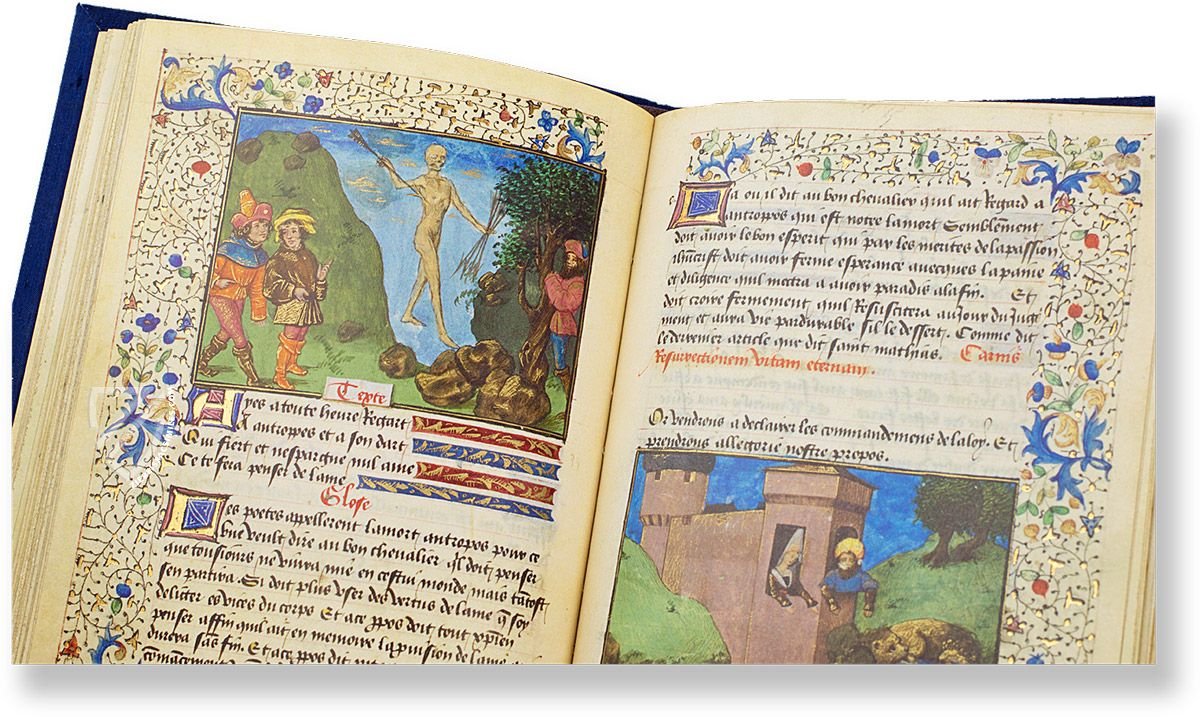 Texte
Ayes a toute heure Regart
A antroppos et a son dart
Qui fiert et nespargne nul ame
Ce te fera penser de lame
Glose
Les poetes appellerent lamort antropos pour ce
que veult dire au bon chevalier ql doit penser
que tousiours ne vivra mie en cestui monde mais tantost
sen partira. Si doit plus user des vertus de lame q soy
deliter es vices du corps Et ace ppos doit tout xpien
penser affin quil ait en memoire la pvision de lame
durera sas fin. Et ace ppos dit
La ou il dit au bon chevalier quil ait Regard a
antropos qui est notre lamort Semblement
doit avoir le bon esperit qui par les merites de la passion
ihucrist doit avoir ferme esperance avecques la paine
et diligence quil mectra a avoir paradis ala fin. Et
doit croire fermement quil Resuscitera au Jour du Juge
ment et aura vie pardurable sil le dessert. Comme dit
le derrenier article que dit saint mathias. Carnis
Resurrectionem vitam eternam.
Or vendrons a declairer les commandemens de la loy. Et
prendrons allegorie a nostre propos.